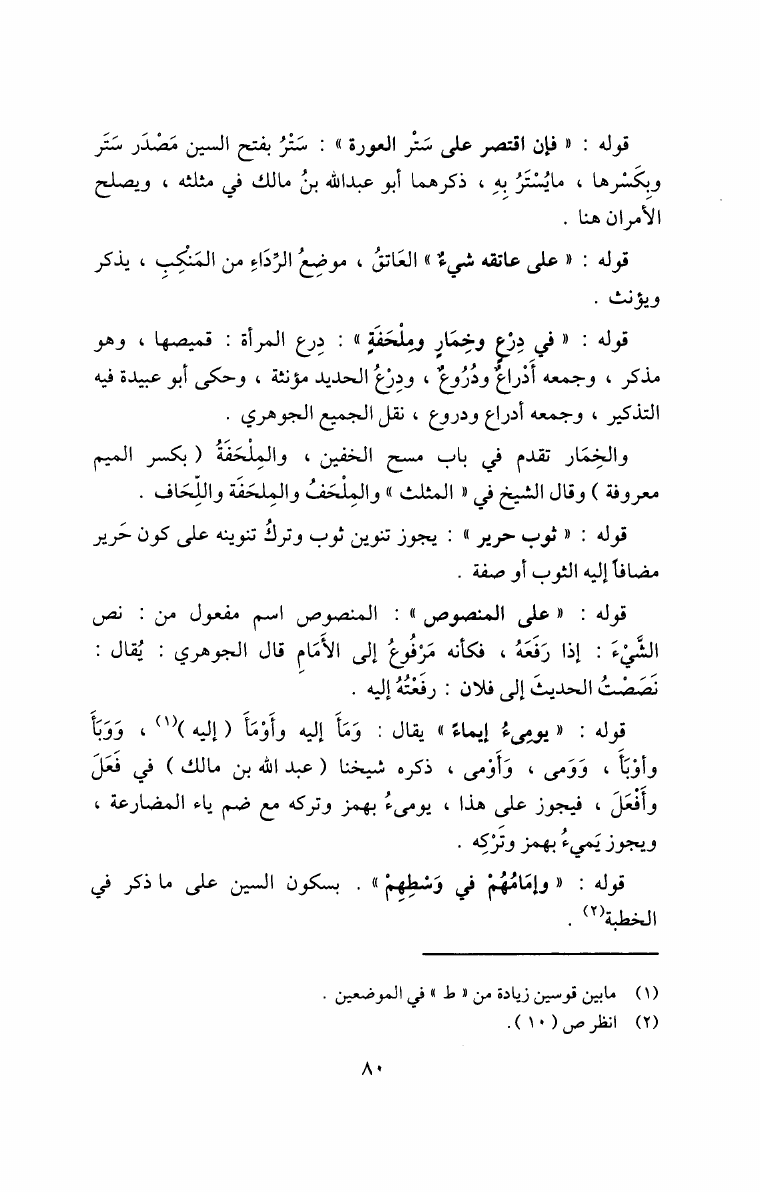 قوله : « فإن اقتصر على سَتْر العورة » : سَتْرُ بفتح السين مَصْدَر سَتَر
وبِكَسْرها ، مايُسْتَرُ بِهِ ، ذكرهما أبو عبدالله بنُ مالك في مثلثه ، ويصلح
الأمران هنا .
قوله : « على عاتقه شيءٌ » العَاتقُ ، موضِعُ الرِّدَاءِ من المَنكِبِ ، يذكر
ويؤنث .
قوله : « في دِرْعٍ وخِمَارٍ ومِلْحَفَةٍ » : دِرع المرأة : قميصها ، وهو
مذكر ، وجمعه أَدْراعٌ ودُرُوعٌ ، ودِرْعُ الحديد مؤنثة ، وحكى أبو عبيدة فيه
التذكير ، وجمعه أدراع ودروع ، نقل الجميع الجوهري .
والخِمَار تقدم في باب مسح الخفين ، والمِلْحَفَةُ ( بكسر الميم
معروفة ) وقال الشيخ في « المثلث » والمِلْحَفُ والمِلحَفَة واللِّحَاف .
قوله : « ثوب حرير » : يجوز تنوين ثوب وتركُ تنوينه على كون حَرير
مضافاً إليه الثوب أو صفة .
قوله : « على المنصوص » : المنصوص اسم مفعول من : نص
الشَّيْءَ : إذا رَفَعَهُ ، فكأنه مَرْفُوعُ إلى الأَمَامِ قال الجوهري : يُقال :
نَصَصْتُ الحديثَ إلى فلان : رفَعْتُهُ إليه .
قوله : « يومِىءُ إيماءً » يقال : وَمَأَ إليه وأَوْمَأَ ( إليه )(١) ، وَوَبَأَ
وأوْبَأَ ، وَوَمى ، وَأَوْمى ، ذكره شيخنا ( عبد الله بن مالك ) في فَعَلَ
وأَفْعَلَ ، فيجوز على هذا ، يومىءُ بهمز وتركه مع ضم ياء المضارعة ،
ويجوز يَمىءُ بهمز وتَرْكِه .
قوله : « وإمَامُهُمْ في وَسْطِهِمْ » . بسكون السين على ما ذكر في
الخطبة(٢) .
(١) مابين قوسين زيادة من « ط » في الموضعين .
(٢) انظر ص ( ١٠ ).
٨٠